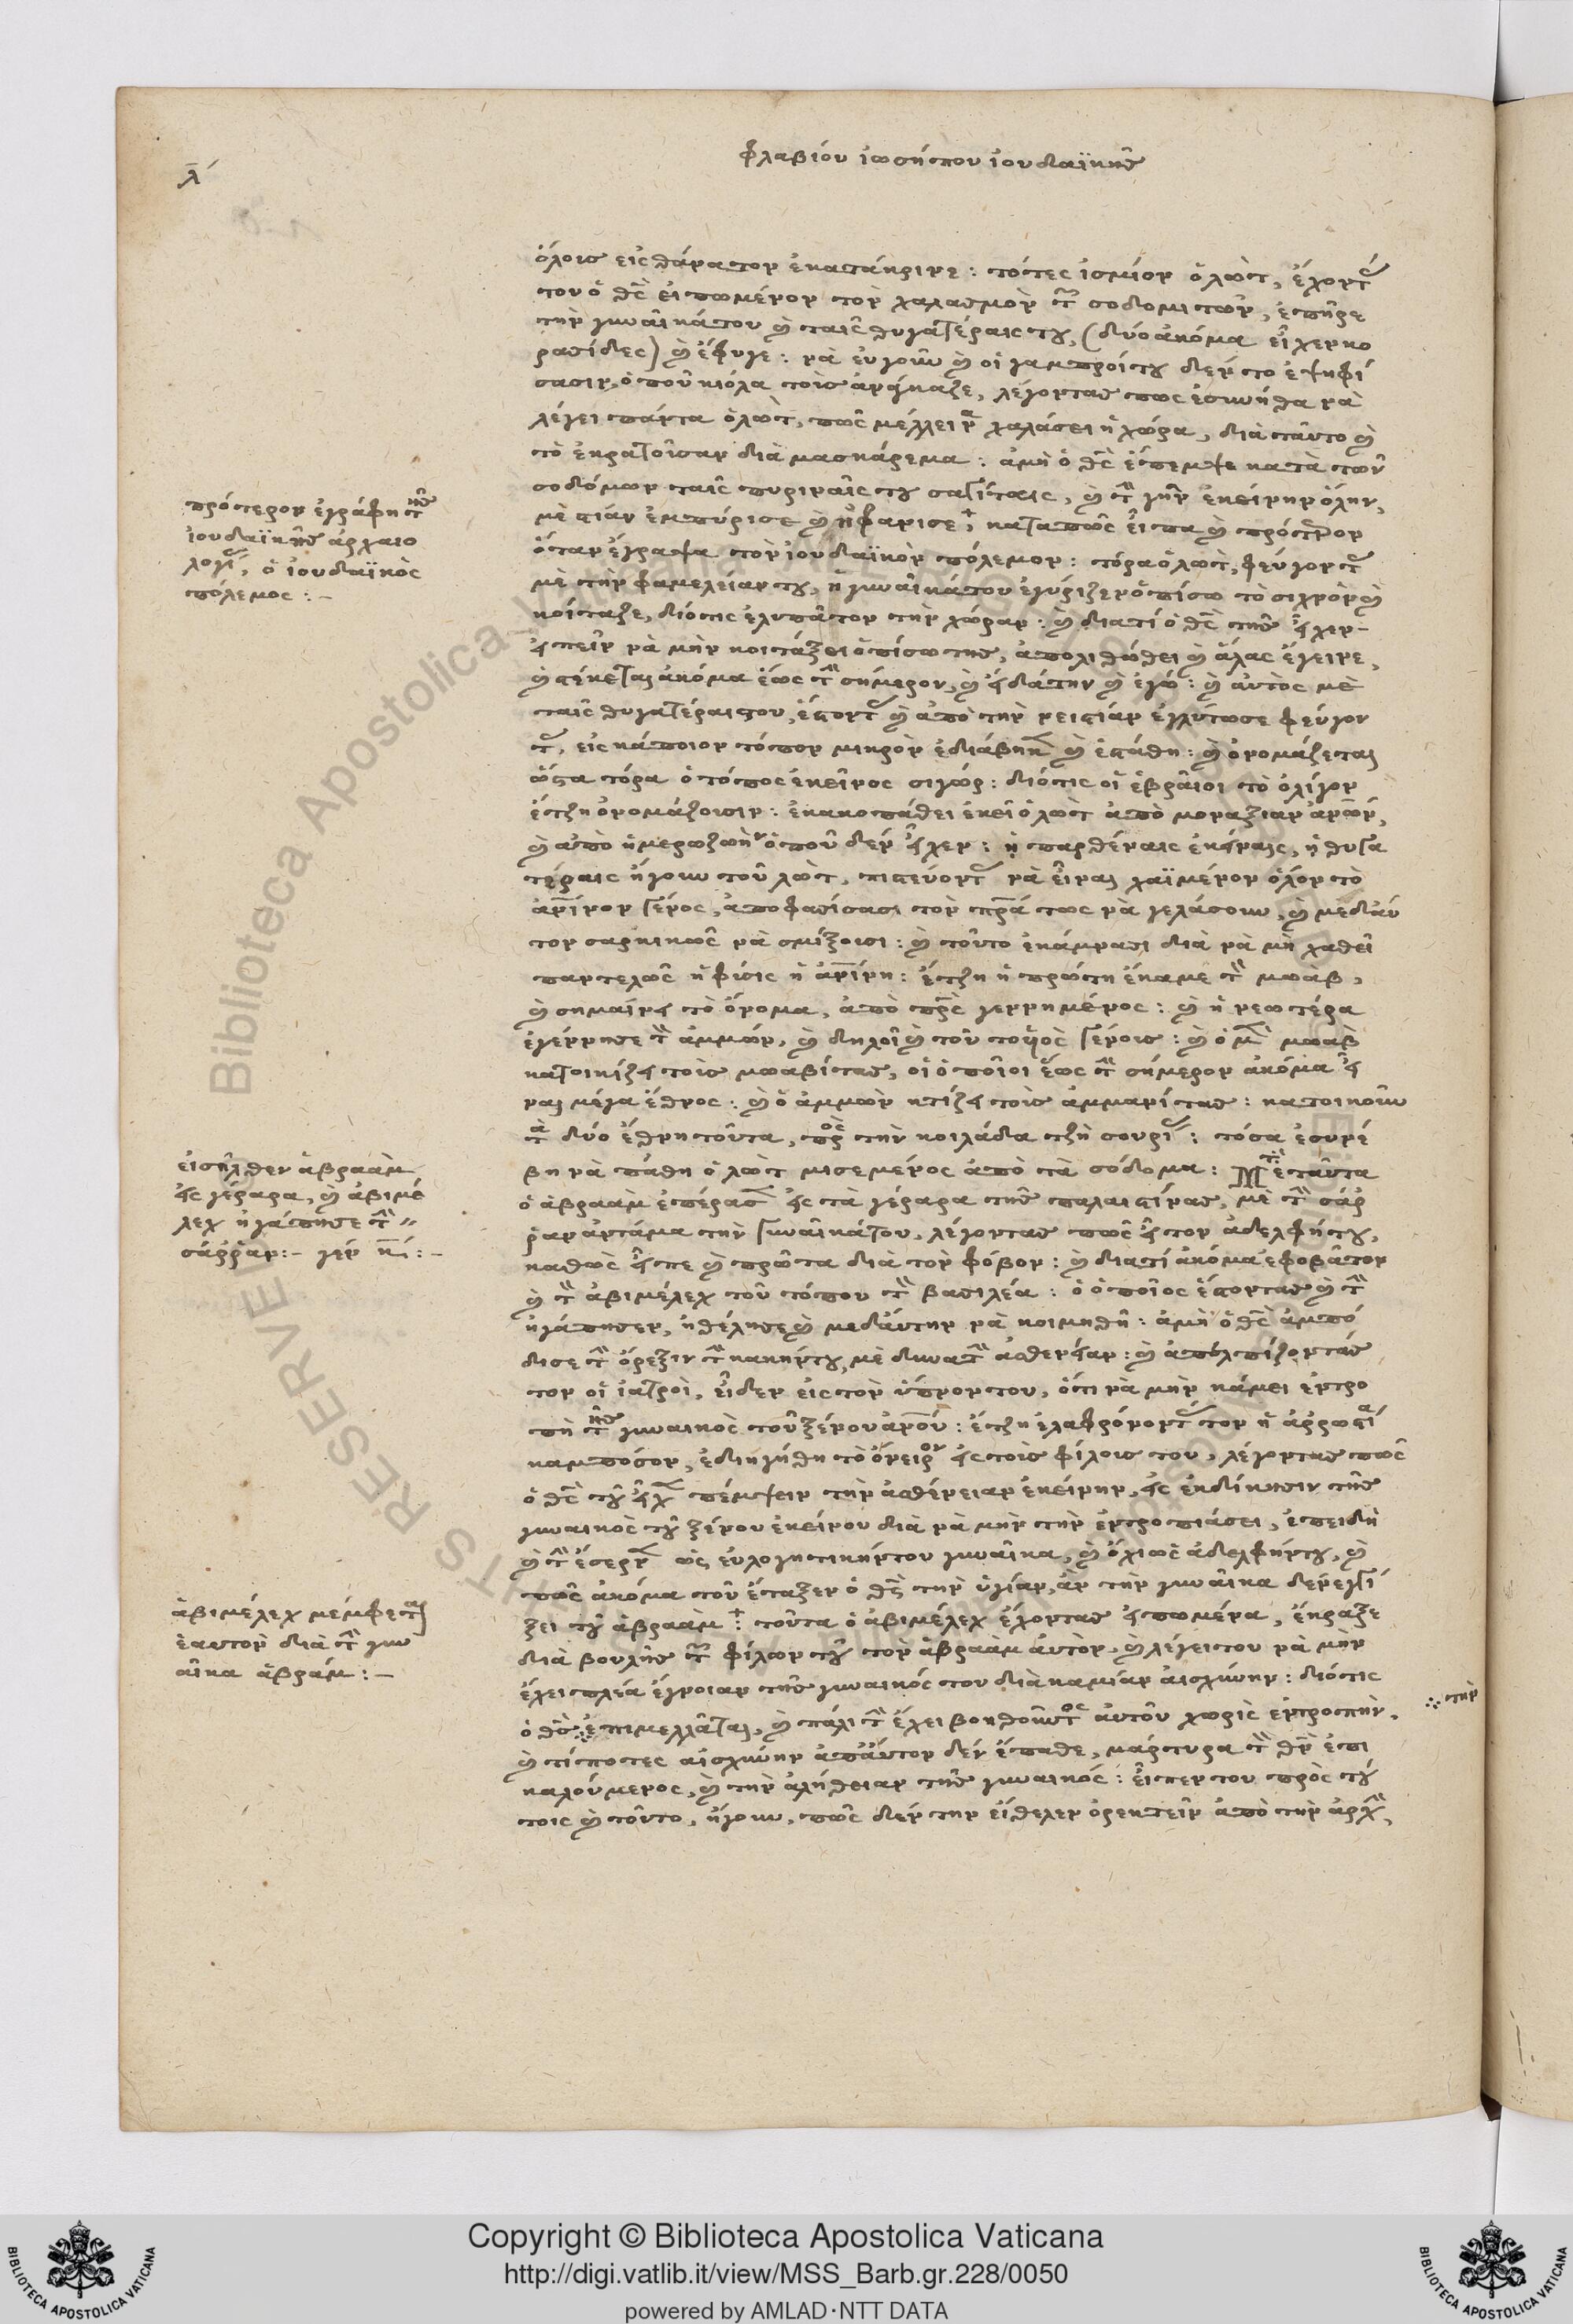 λ´
φλαβίου ἰωσήπου ἰουδαϊκῆς
ὅλους εἰς θάνατον ἐκατάκρινε: τότες ὁ λὼτ,
τὸν χαλασμὸν σοδομιτῶν, ἐπῆρε
τὴν γυναῖκά του καὶ ταῖς θυγατέραις του, (δύο ἀκόμα εἶχεν κο
ρασίδες) καὶ ἔφυγε: οἱ γαμπροί του δὲν τὸ ἐψηφί
σασιν, λέγοντας πῶς
λέγει πάντα ὁ λὼτ, πῶς μέλλει νὰ χαλάσει ἡ χώρα, διὰ ταῦτο καὶ
τὸ ἐκρατοῦσαν διὰ μασκάρεμα: ἀμὴ ὁ θεὸς ἔπεμψε κατὰ τῶν
σοδόμων ταῖς πυριναῖς του σαΐταις, καὶ τὴν γῆν ἐκείνην ὅλην,
ἐμπύρισε καὶ ἠφάνισε, κατὰ πῶς εἶπα καὶ πρότερον
ὅταν ἔγραψα τὸν ἰουδαϊκὸν πόλεμον: τόρα ὁ λὼτ, φεύγοντας
μὲ τὴν φαμελείαν του, ἡ γυναῖκά του ἐγύριζεν ὀπίσω τὸ συχνὸν καὶ
κοίταζε, διότις ἐλυπᾶτον τὴν χώραν: καὶ διατί ὁ θεὸς τῆς εἶχεν
εἰπεῖν νὰ μὴν κοιτάξει ὀπίσω της, ἀπολιθώθει καὶ ἅλας ἔγεινε,
καὶ στέκεται ἀκόμα ἕως τὴν σήμερον, καὶ εἶδά την καὶ ἐγώ: καὶ αὐτὸς μὲ
ταῖς θυγατέραις του, ἔστοντας καὶ ἀπὸ τὴν νειστίαν ἐγλύτωσε φεύγον
τας, εἰς κάποιον τόπον μικρὸν ἐδιάβηκε καὶ ἐστάθη: καὶ ὀνομάζεται
ὥστα τόρα ὁ τόπος ἐκεῖνος σιγώρ: διότις οἱ ἑβραῖοι τὸ ὀλίγον
ἔτζη ὀνομάζουσιν: ἐκακοπάθει ἐκεῖ ὁ λὼτ ἀπὸ μοναξίαν ἀνθρώπων,
καὶ ἀπὸ ὁποῦ δὲν εἶχεν: ἡ παρθέναις ἐκείναις, ἡ θυγα
τέραις ἤγουν τοῦ λὼτ, πιστεύοντας νὰ εἶναι χαϊμένον ὅλον τὸ
ἀνθρώπινον γένος, ἀποφασίσασι τὸν πατέρα τως νὰ γελάσουν, καὶ μεδαύ
τον σαρκικῶς νὰ σμίξουσι: καὶ τοῦτο ἐκάμνασι διὰ νὰ μὴ χαθεῖ
παντελῶς ἡ φύσις ἡ ἀνθρωπίνη: ἔτζη ἡ πρώτη ἔκαμε τὸν μωὰβ,
καὶ σημαίνει τὸ ὄνομα, ἀπὸ πατρὸς γεννημένος: καὶ ἡ νεωτέρα
ἐγέννησε τὸν ἀμμών, καὶ δηλοῖ καὶ τοῦ υἱὸς γένους: καὶ ὁ μὲν μωὰβ
κατοικίζει τοὺς μωαβίτας, οἱ ὁποῖοι ἕως τὴν σήμερον ἀκόμα εἶ
ναι μέγα ἔθνος: καὶ ὁ ἀμμὼν κτίζει τοὺς ἀμμανίτας: κατοικοῦν
τὰ δύο ἔθνη τοῦτα, πρὸς τὴν κοιλάδα τζὴ συρίας: τόσα ἐσυνέ
βη νὰ πάθη ὁ λὼτ μισεμένος ἀπὸ τὰ σόδομα: ταῦτα
ὁ ἀβραὰμ ἐπέρασε εἰς τὰ γέραρα τῆς παλαιστίνας, μὲ τὴν σάρ
ραν ἀντάμα τὴν γυναῖκά του, λέγοντας πῶς εἶτον ἀδελφή του,
καθὼς εἶπε καὶ πρῶτα διὰ τὸν φόβον: καὶ διατί ἀκόμα ἐφοβᾶτον
καὶ τὸν ἀβιμέλεχ τοῦ τόπου τὸν βασιλέα: ὁ ὁποῖος ἔστοντας καὶ τὴν
ἠγάπησεν, ἠθέλησε καὶ μεδαύτην νὰ κοιμηθῆ: ἀμὴ ὁ θεὸς ἀμπό
δισε τὴν ὄρεξιν τὴν κακήν του, μὲ δυνατὴν ἀσθένειαν: καὶ ἀπελπίζοντάς
τον οἱ ἰατροὶ, εἶδεν εἰς τὸν ὕπνον του, ὅτι νὰ μὴν κάμει ἐντρο
πὴ τῆς γυναικὸς τοῦ ξένου ἀνθρώπου: ἔτζη ἐλαφρόνοντάς τον ἡ ἀρρωστία
καμπόσον, ἐδιηγήθη τὸ ὄνειρον εἰς τοὺς φίλους του, λέγοντας πῶς
ὁ θεὸς τοῦ εἶχε πέμψειν τὴν ἀσθένειαν ἐκείνην, εἰς ἐκδίκησιν τῆς
γυναικὸς τοῦ ξένου ἐκείνου διὰ νὰ μὴν τὴν ἐντροπιάσει, ἐπειδὴ
καὶ τὴν ἔσερνε ὡς εὐλογητικήν του γυναῖκα, καὶ ὄχι ὡς ἀδελφήν του, καὶ
πῶς ἀκόμα τοῦ ἔταξεν ὁ θεὸς τὴν ὑγίαν, ἂν τὴν γυναῖκα δὲν ἐγγί
ξει τοῦ ἀβραάμ: τοῦτα ὁ ἀβιμέλεχ ἔχοντας εἰπωμένα, ἔκραξε
διὰ βουλῆς τῶν φίλων του τὸν ἀβραὰμ αὐτὸν, καὶ λέγει του νὰ μὴν
ἔχει πλέα ἔγνοιαν τῆς γυναικός του διὰ καμίαν αἰσχύνην: διότις
ὁ θεὸς ἐπιμελλᾶται, καὶ πάλι τὴν ἔχει βοηθοῦντος αὐτοῦ χωρὶς ἐντροπὴν,
καὶ τίποτες αἰσχύνην ἀπαύτον δὲν ἔπαθε, μάρτυρα τὸν θεὸν ἐπι
καλούμενος, καὶ τὴν ἀλήθειαν τῆς γυναικός: εἶπεν του πρὸς τού
τοις καὶ τοῦτο, ἤγουν, πῶς δὲν τὴν εἴθελεν ὀρεκτεῖν ἀπὸ τὴν ἀρχὴν,
πρότερον ἐγράφη τῆς
ἰουδαϊκῆς ἀρχαιο
λογίας, ὁ ἰουδαϊκὸς
πόλεμος:-
εἰσῆλθεν ἀβραὰμ
εἰς γέραρα, καὶ ἀβιμέ
λεχ ἠγάπησε τὴν
σάρραν:-
ἀβιμέλεχ μέμφεται
ἑαυτὸν διὰ τὴν γυν
αῖκα ἀβράμ:-
τὴν
Biblioteca Apostolica
RIGHTS RESERVED
Copyright © Biblioteca Apostolica Vaticana
http://digi.vatlib.it/view/MSS_Barb.gr.228/0050
powered by AMLAD·NTT DATA
BIBLIOTECA APOSTOLICA VATICANA
BIBLIOTECA APOSTOLICA VATICANA